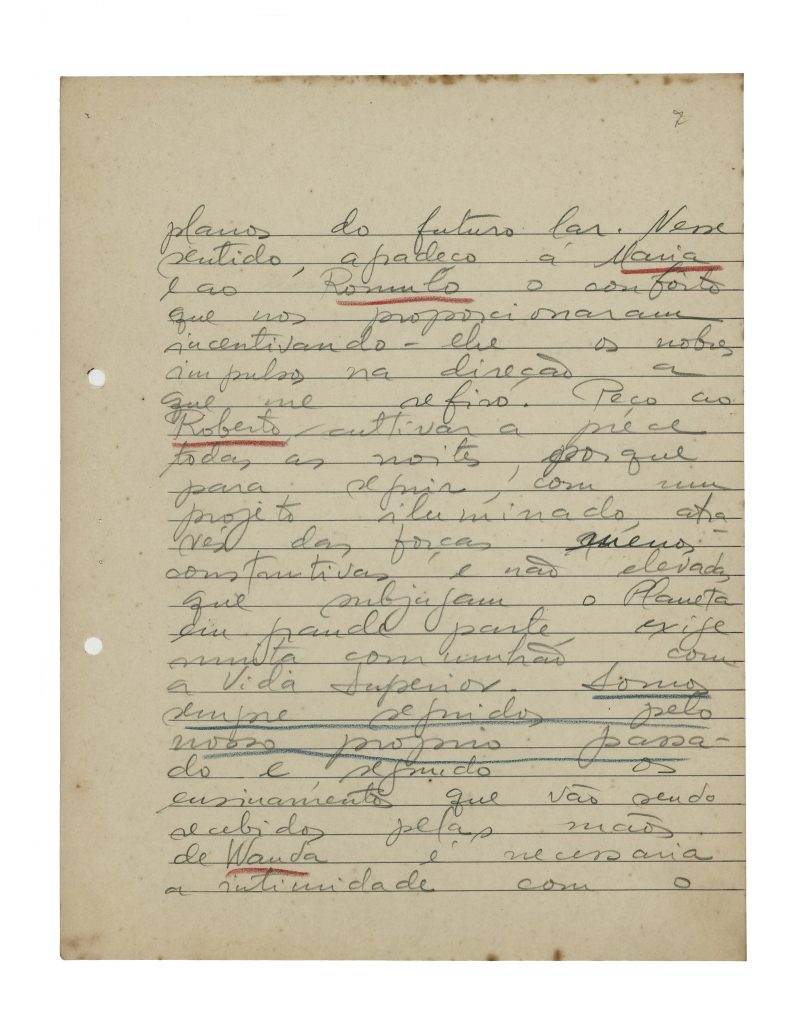 7
planos do futuro lar. Nesse
sentido, agradeço á Maria
e ao Romulo o conforto
que nos proporcionaram
incentivando-lhe os nobres
impulsos na direção a
que me refiro. Peço ao
Roberto cultivar a préce
todas as noites, porque
para seguir, com um
projéto iluminado, atra-
vés das forças menos
construtivas e não elevadas
que subjugam o Planeta
em grande parte exige
muita comunhão com
a Vida Superior. Somos
sempre seguidos pelo
nosso proprio passa-
do e segundo os
ensinamentos que vão sendo
recebidos pelas mãos
de Wanda é necessaria
a intimidade com o